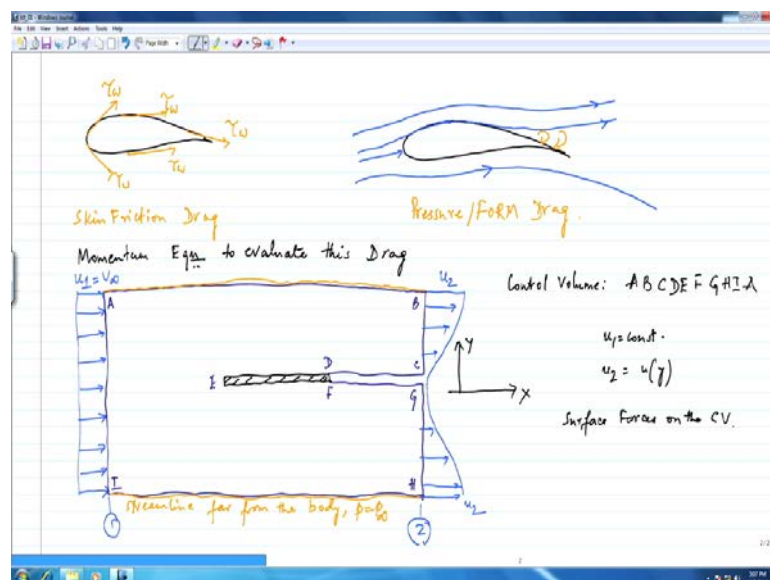 File Edit View Insert Actions Tools Help
Page Width
τw τw τw τw τw
Skin Friction Drag
Pressure/FORM Drag.
Momentum Eqn to evaluate this Drag
u1 = V∞
u2
Control Volume: A B C D E F G H I A
A
B
C
D
E
F
G
Y
X
u1 = const.
u2 = u(y)
Surface Forces on the CV.
I
H
u2
Streamline far from the body, p = p∞
1
2
2